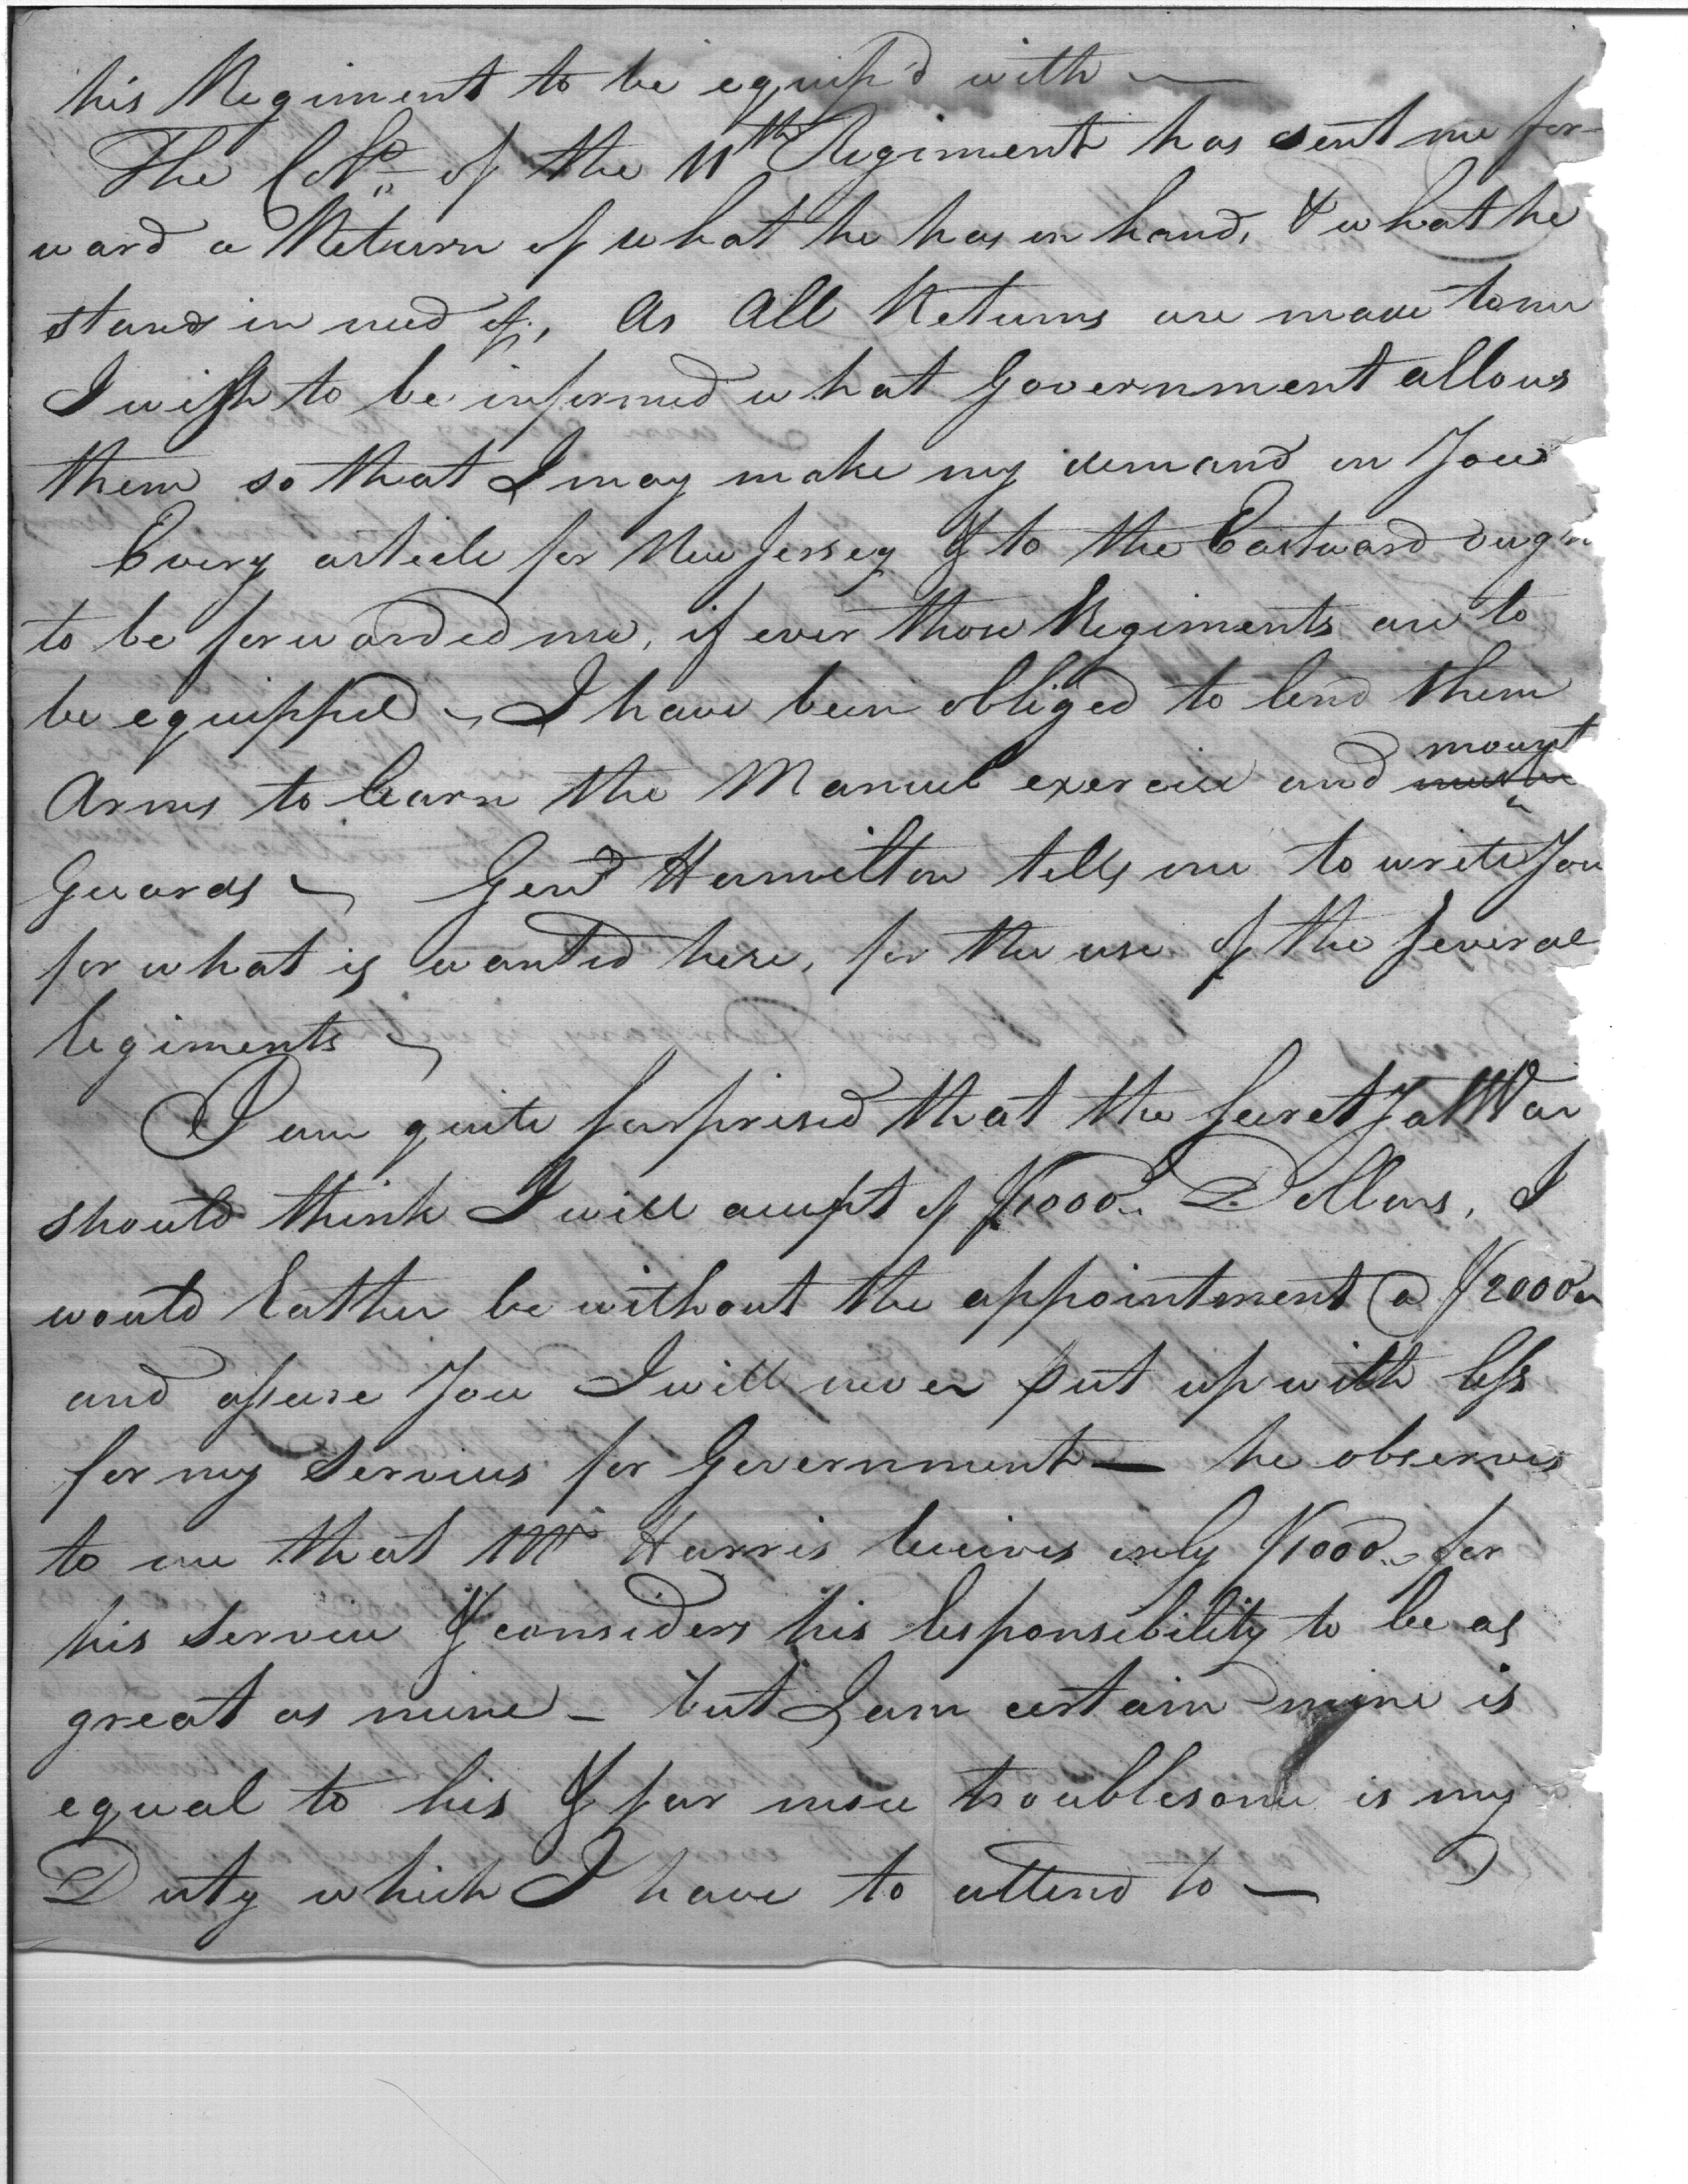 his Regiment to be equip'd with —
The Col.o of the 11th Regiment has sent me for-
ward a Return of what he has on hand, & what he
stand in need of, As All Returns are made to me
I wish to be informed what Government allows
them so that I may make my demand on You
Every article for New Jersey & to the Eastward ought
to be forwarded me, if ever those Regiments are to
be equipped ~ I have been obliged to lend them
Arms to learn the Manuel exercise and mount
Guards ~ Genl Hamilton tells me to write You
for what is wanted here, for the use of the several
regiments ~
I am quite surprised that the Secrety at War
should think I will accept of $1000.. Dollars, I
would rather be without the appointment @ $2000..
and assure You I will never put up with less
for my Services for Government — he observes
to me that Mr Harris receives only $1000.. for
his Service & considers his responsibility to be as
great as mine — but I am certain mine is
equal to his & far more troublesome is my
Duty which I have to attend to —